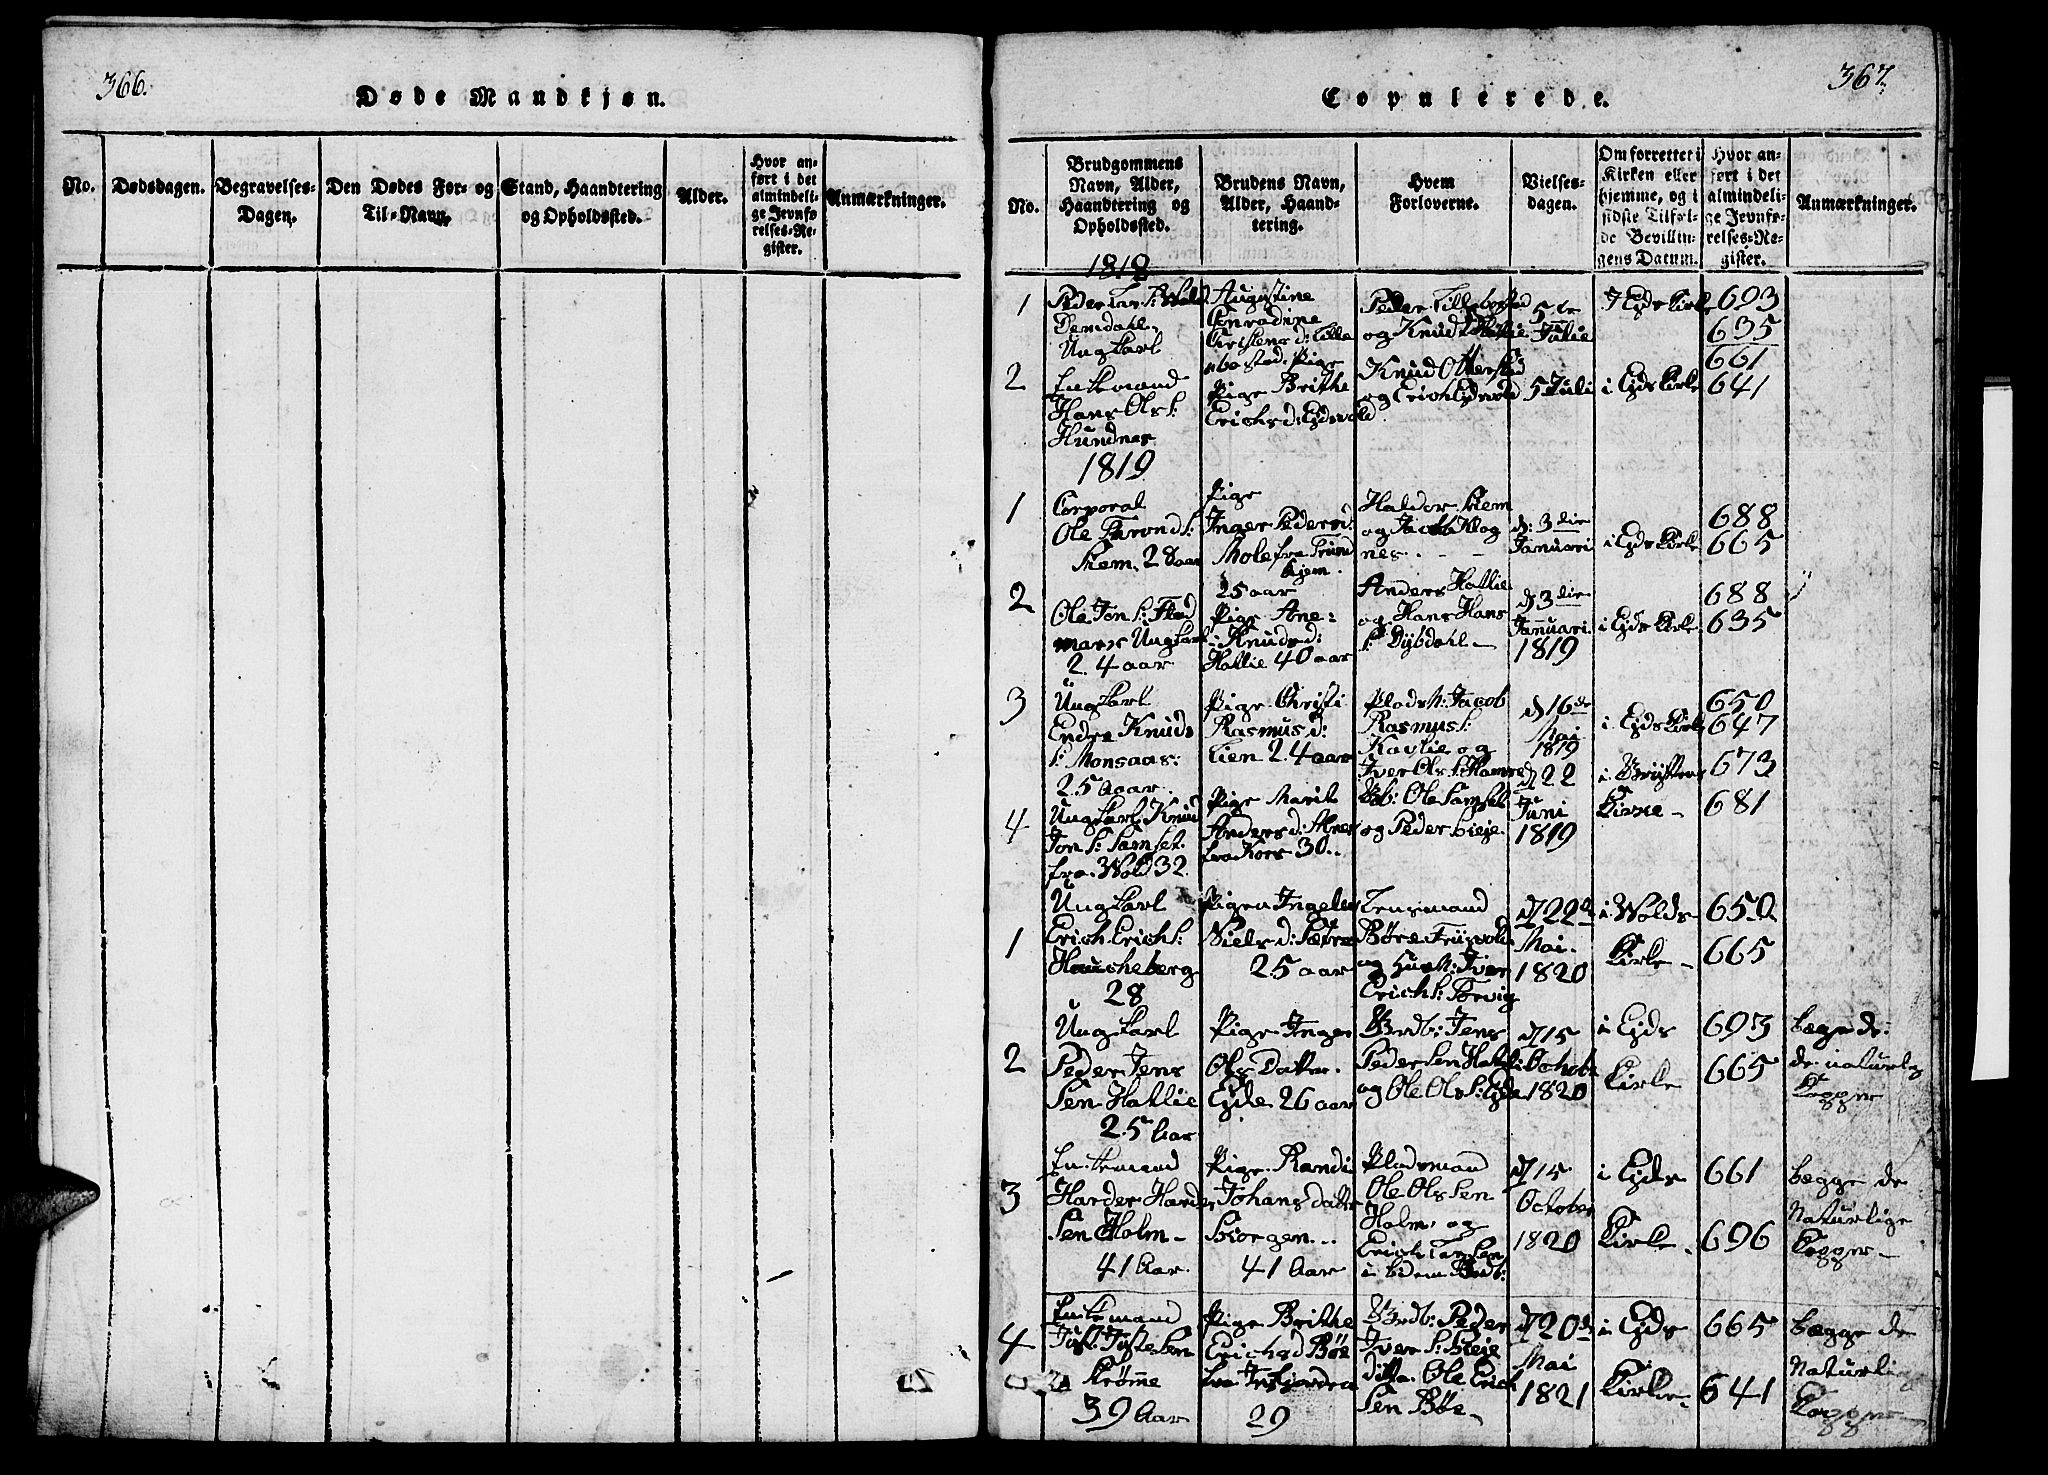 366.
Døde Mandkjøn.
No.
Dødsdagen.
Begravelses-
Dagen.
Den Dødes For- og
Til-Navn.
Stand, Haandtering
og Opholdssted.
Alder.
Hvor an-
ført i det
almindeli-
ge Jevnfø
relses-Re-
gister.
Anmærkninger.
367.
Copulerede.
No.
Brudgommens
Navn, Alder,
Haandtering og
Opholdssted.
Brudens Navn,
Alder, Haand-
tering.
Hvem
Forloverne.
Vielses-
dagen.
Om forrettet i
Kirken eller
hjemme, og i
sidste Tilfæl-
de Bevillin-
gens Datum.
Hvor an-
ført i det
almindeli-
ge Jevnfø-
relses-Re-
gister.
Anmærkninger.
1818
1
Ungkarl
Augustine
Conradine
Peder
og Knud
5te
Julie
i Ejds Kirke
693
635
2
Enkemand
Hans Ols S:
Hundnes
Pige Brithe
Erichs d: Ejdsvold
Knud Otterstad
og Erich Ejdsvold
5 Juli
i Ejds Kirke
661
641
1819
1
Corporal
Ole Trond S:
Skem. 28 aar
Pige
Inger Peders d:
Mole fra Trund
hjem.
25 aar
Haldor Skem
og Jacob Klog
nes.
d: 3die
Januari
i Ejds Kirke
688
665
2
Ole Jon S: Flad
mark Ungkarl
24 aar
Pige Ane:
Knuds d:
Hatlie 40 aar
Anders Hatlie
og Hans Hans
S: Dybdahl
d 3die
Januari
1819
i Ejds Kirke
688
635
3
Ungkarl
Endre Knuds
S: Monsaas:
25 Aar
Pige Christi
Rasmus d:
Lien 24 aar
Plads M: Jacob
Rasmus S:
Kavlie og
Iver Ols S: Hamre
d 16de
Mai
1819
i Ejds Kirke
650
647
4
Ungkarl Knud
Jon S: Samset
fra Wold 32
Pige Marit
Anders d:
fra Kors 30
Ole Samset
og Peder Bieje
d 22
Juni
1819
i Grytten
Kirke
673
681
1
Ungkarl
Erich Erich S:
Haucheberg
28
Pigen Ingeleg
Niels d: Sætre
25 aar
Lensmand
Børe
og Huus M: Iver
Erich S: Torvig
d 22d
Mai
1820
i Wolds
Kirke
650
665
2
Ungkarl
Peder Jens
Sen Hatlie
25 Aar
Pige Inger
Ols Datter
Ejde 26 aar
Grdb: Jens
Peder Sen Hatli
og Ole Ols S: Ejde
d 15
Octobe
1820
i Ejds
Kirke
693
665
begge de
de naturlig
Kopper
3
Enkemand
Harder Harder
Sen Holm
41 Aar
Pige Randi
Johans datter
Skorgen
41 Aar
Pladsmand
Ole Ols Sen
Holm og
Erich Lars Sen
i bdem Grdb:
d 15
October
1820
i Ejds
Kirke
661
696
begge de
Naturlige
Kopper
4
Enkemand
Just Juste Sen
Krømme
39 Aar
Pige Brithe
Erichs d Bøe
fra Insfjorden
29
Grdb: Peder
Iver S: Bieje
ditto Ole Erich
Sen Bøe
d 20d
Mai
1821
i Ejds
Kirke
665
641
begge de
Naturli
Kopper